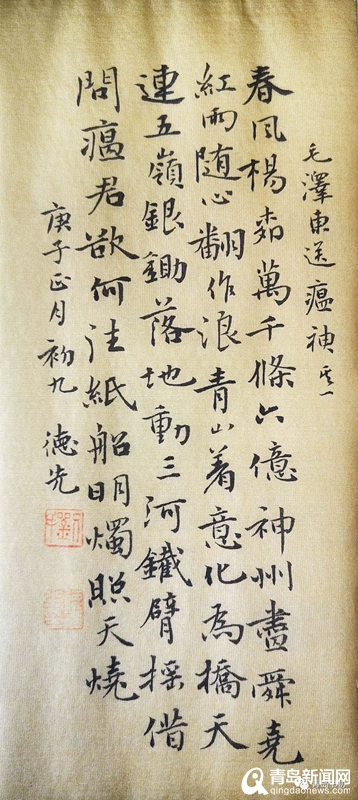 毛澤東送瘟神其一
春风楊柳萬千條六億神州盡舜堯
紅雨随心翻作浪青山着意化為橋天
連五嶺銀鋤落地動三河鐵臂摇借
問瘟君欲何往紙船明燭照天燒
庚子正月初九 德先
青岛新闻网
qingdaonews.com